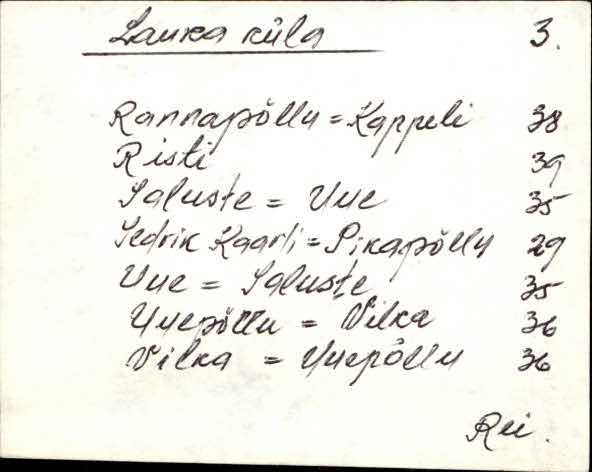 Lauka küla 3.
Rannapõllu = Kappeli 38
Risti 39
Saluste = Uue 35
Sedrik Kaarli = Pikapõllu 29
Uue = Saluste 35
Uuepõllu = Vilka 36
Vilka = Uuepõllu 36
Rei.